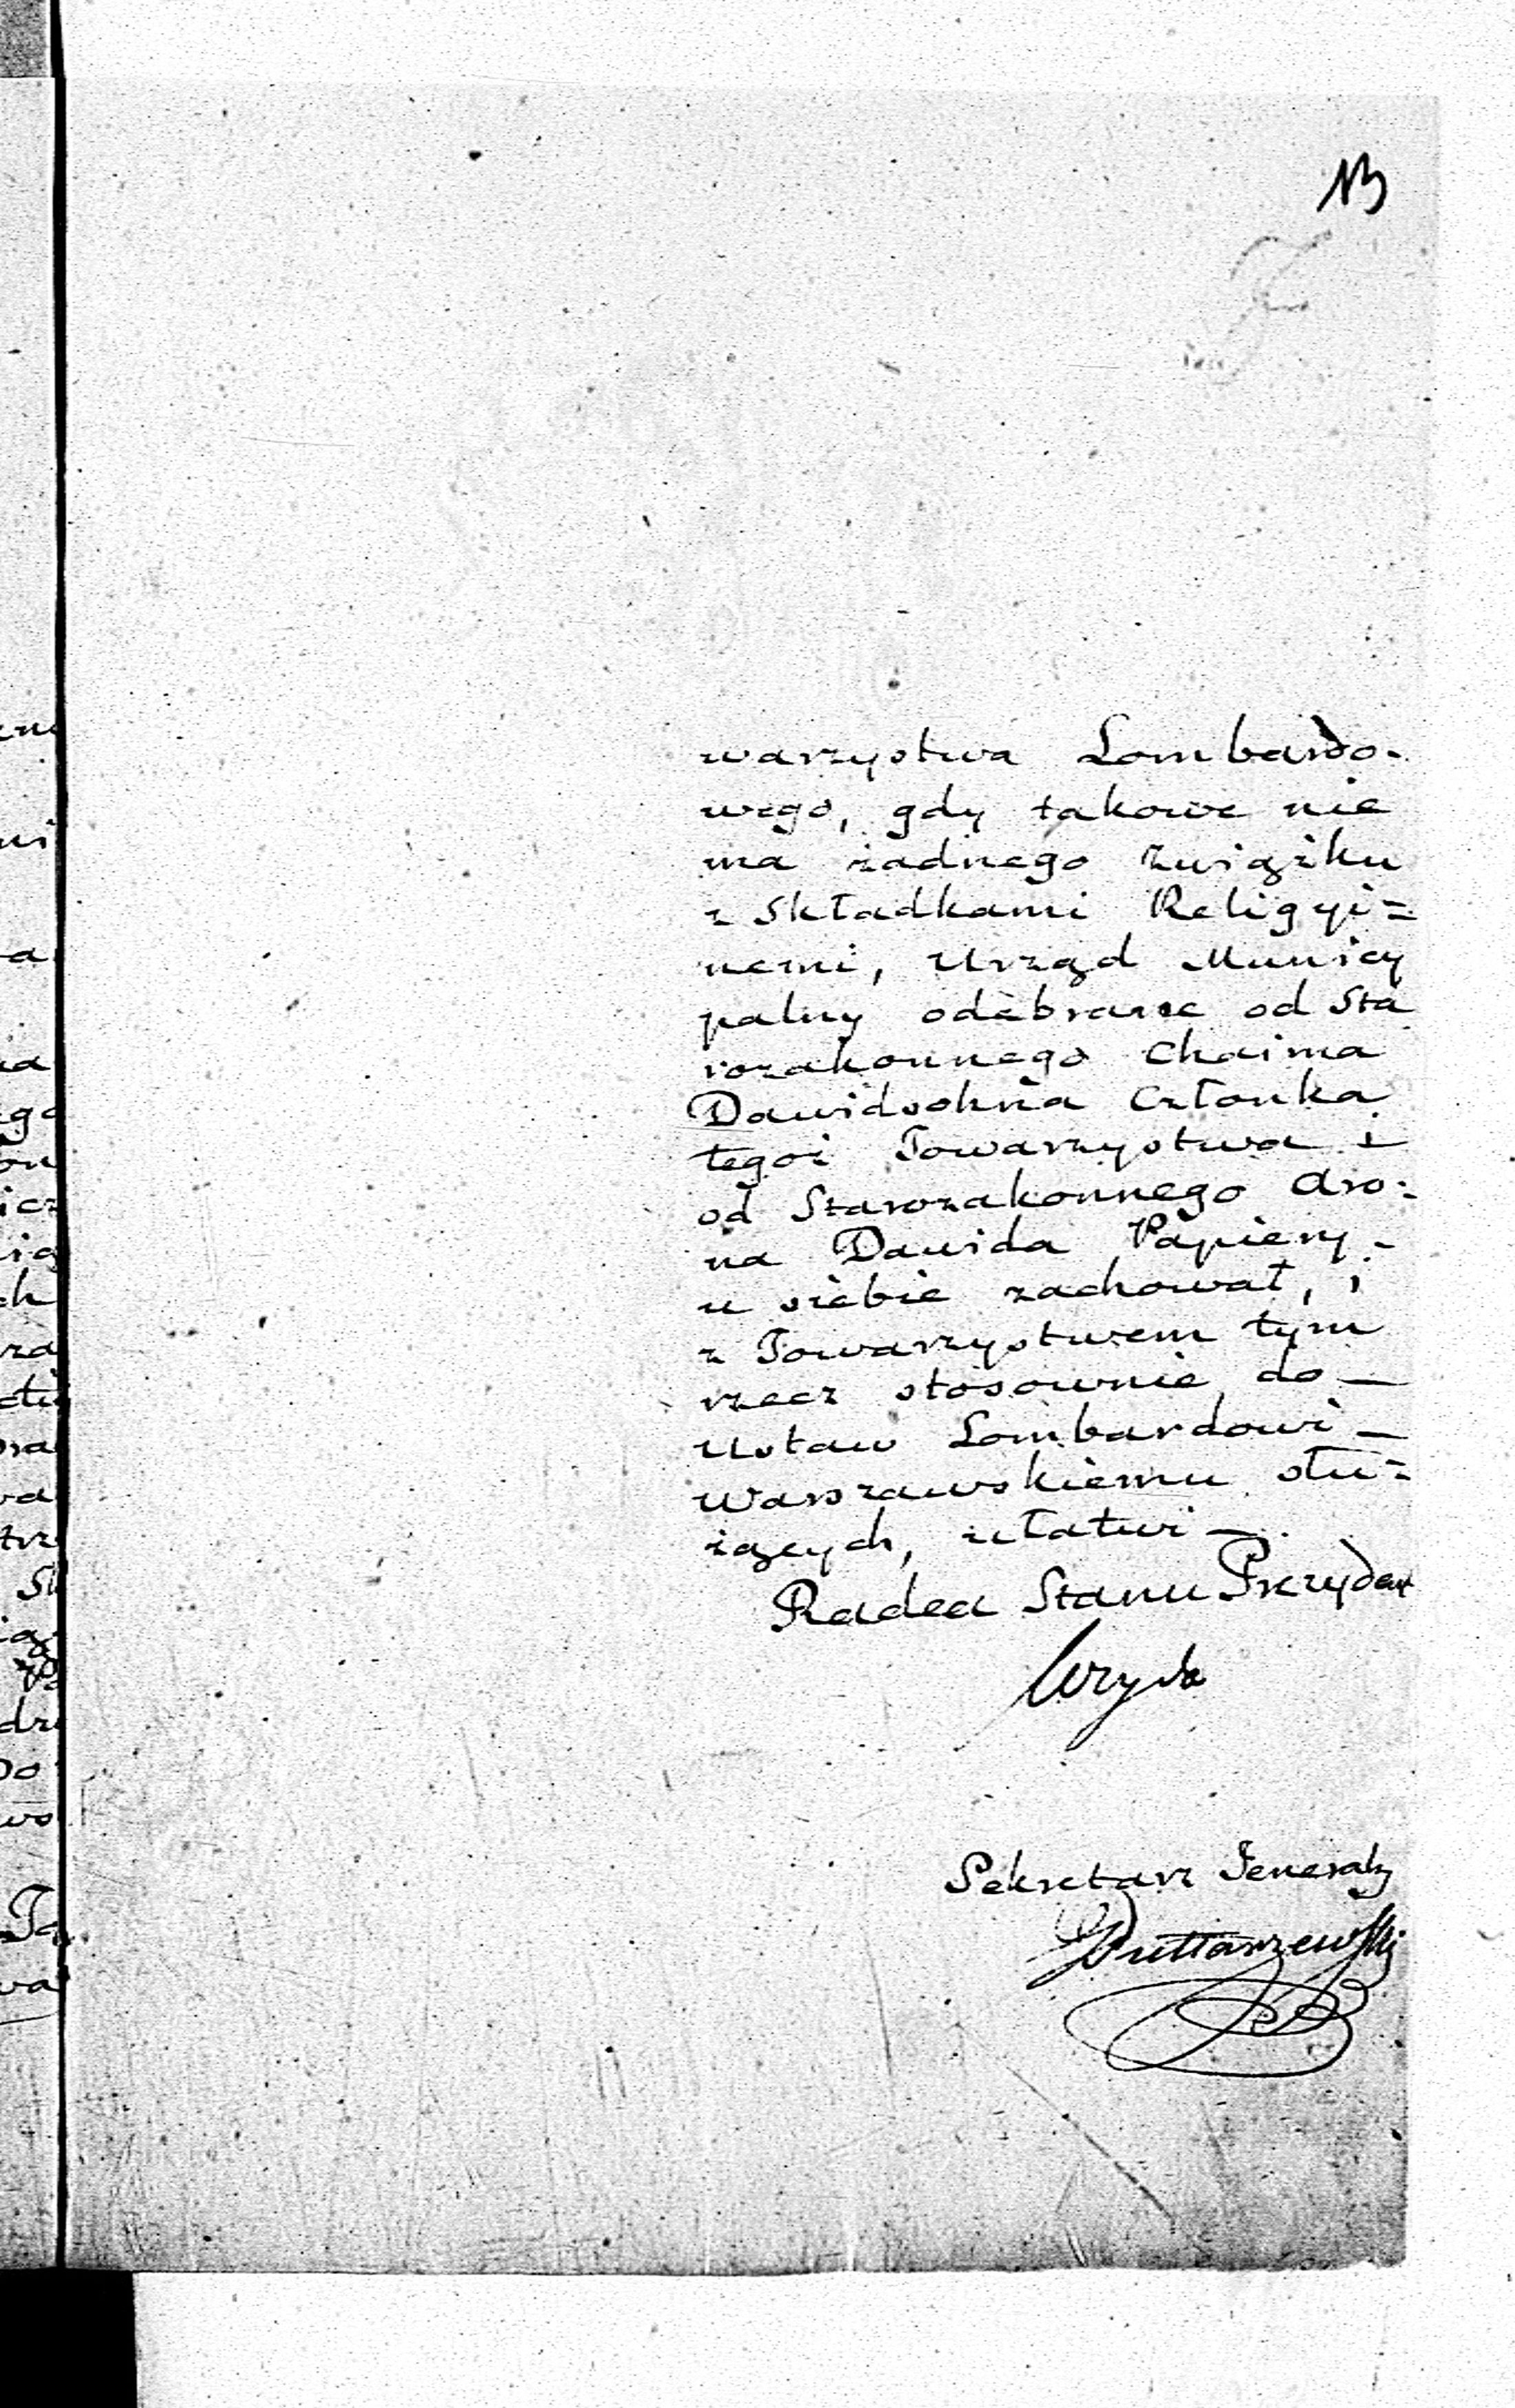 13
warzystwa Lombardo-
wego, gdy takowe nie
ma żadnego związku
z Składkami Religyi=
nemi, Urząd Municy
palny odebrane od Sta
rozakonnego Chaima
Dawidsohna Członka
tegoż Towarzystwa i
od Starozakonnego Aro-
na Dawida Papiery -
u siebie zachował, i
z Towarzystwem tym
rzecz stosownie do —
Ustaw Lombardowi —
Warszawskiemu słu=
żących, ułatwi —.
Radca Stanu Prezydent
Sekretarz Jeneralny